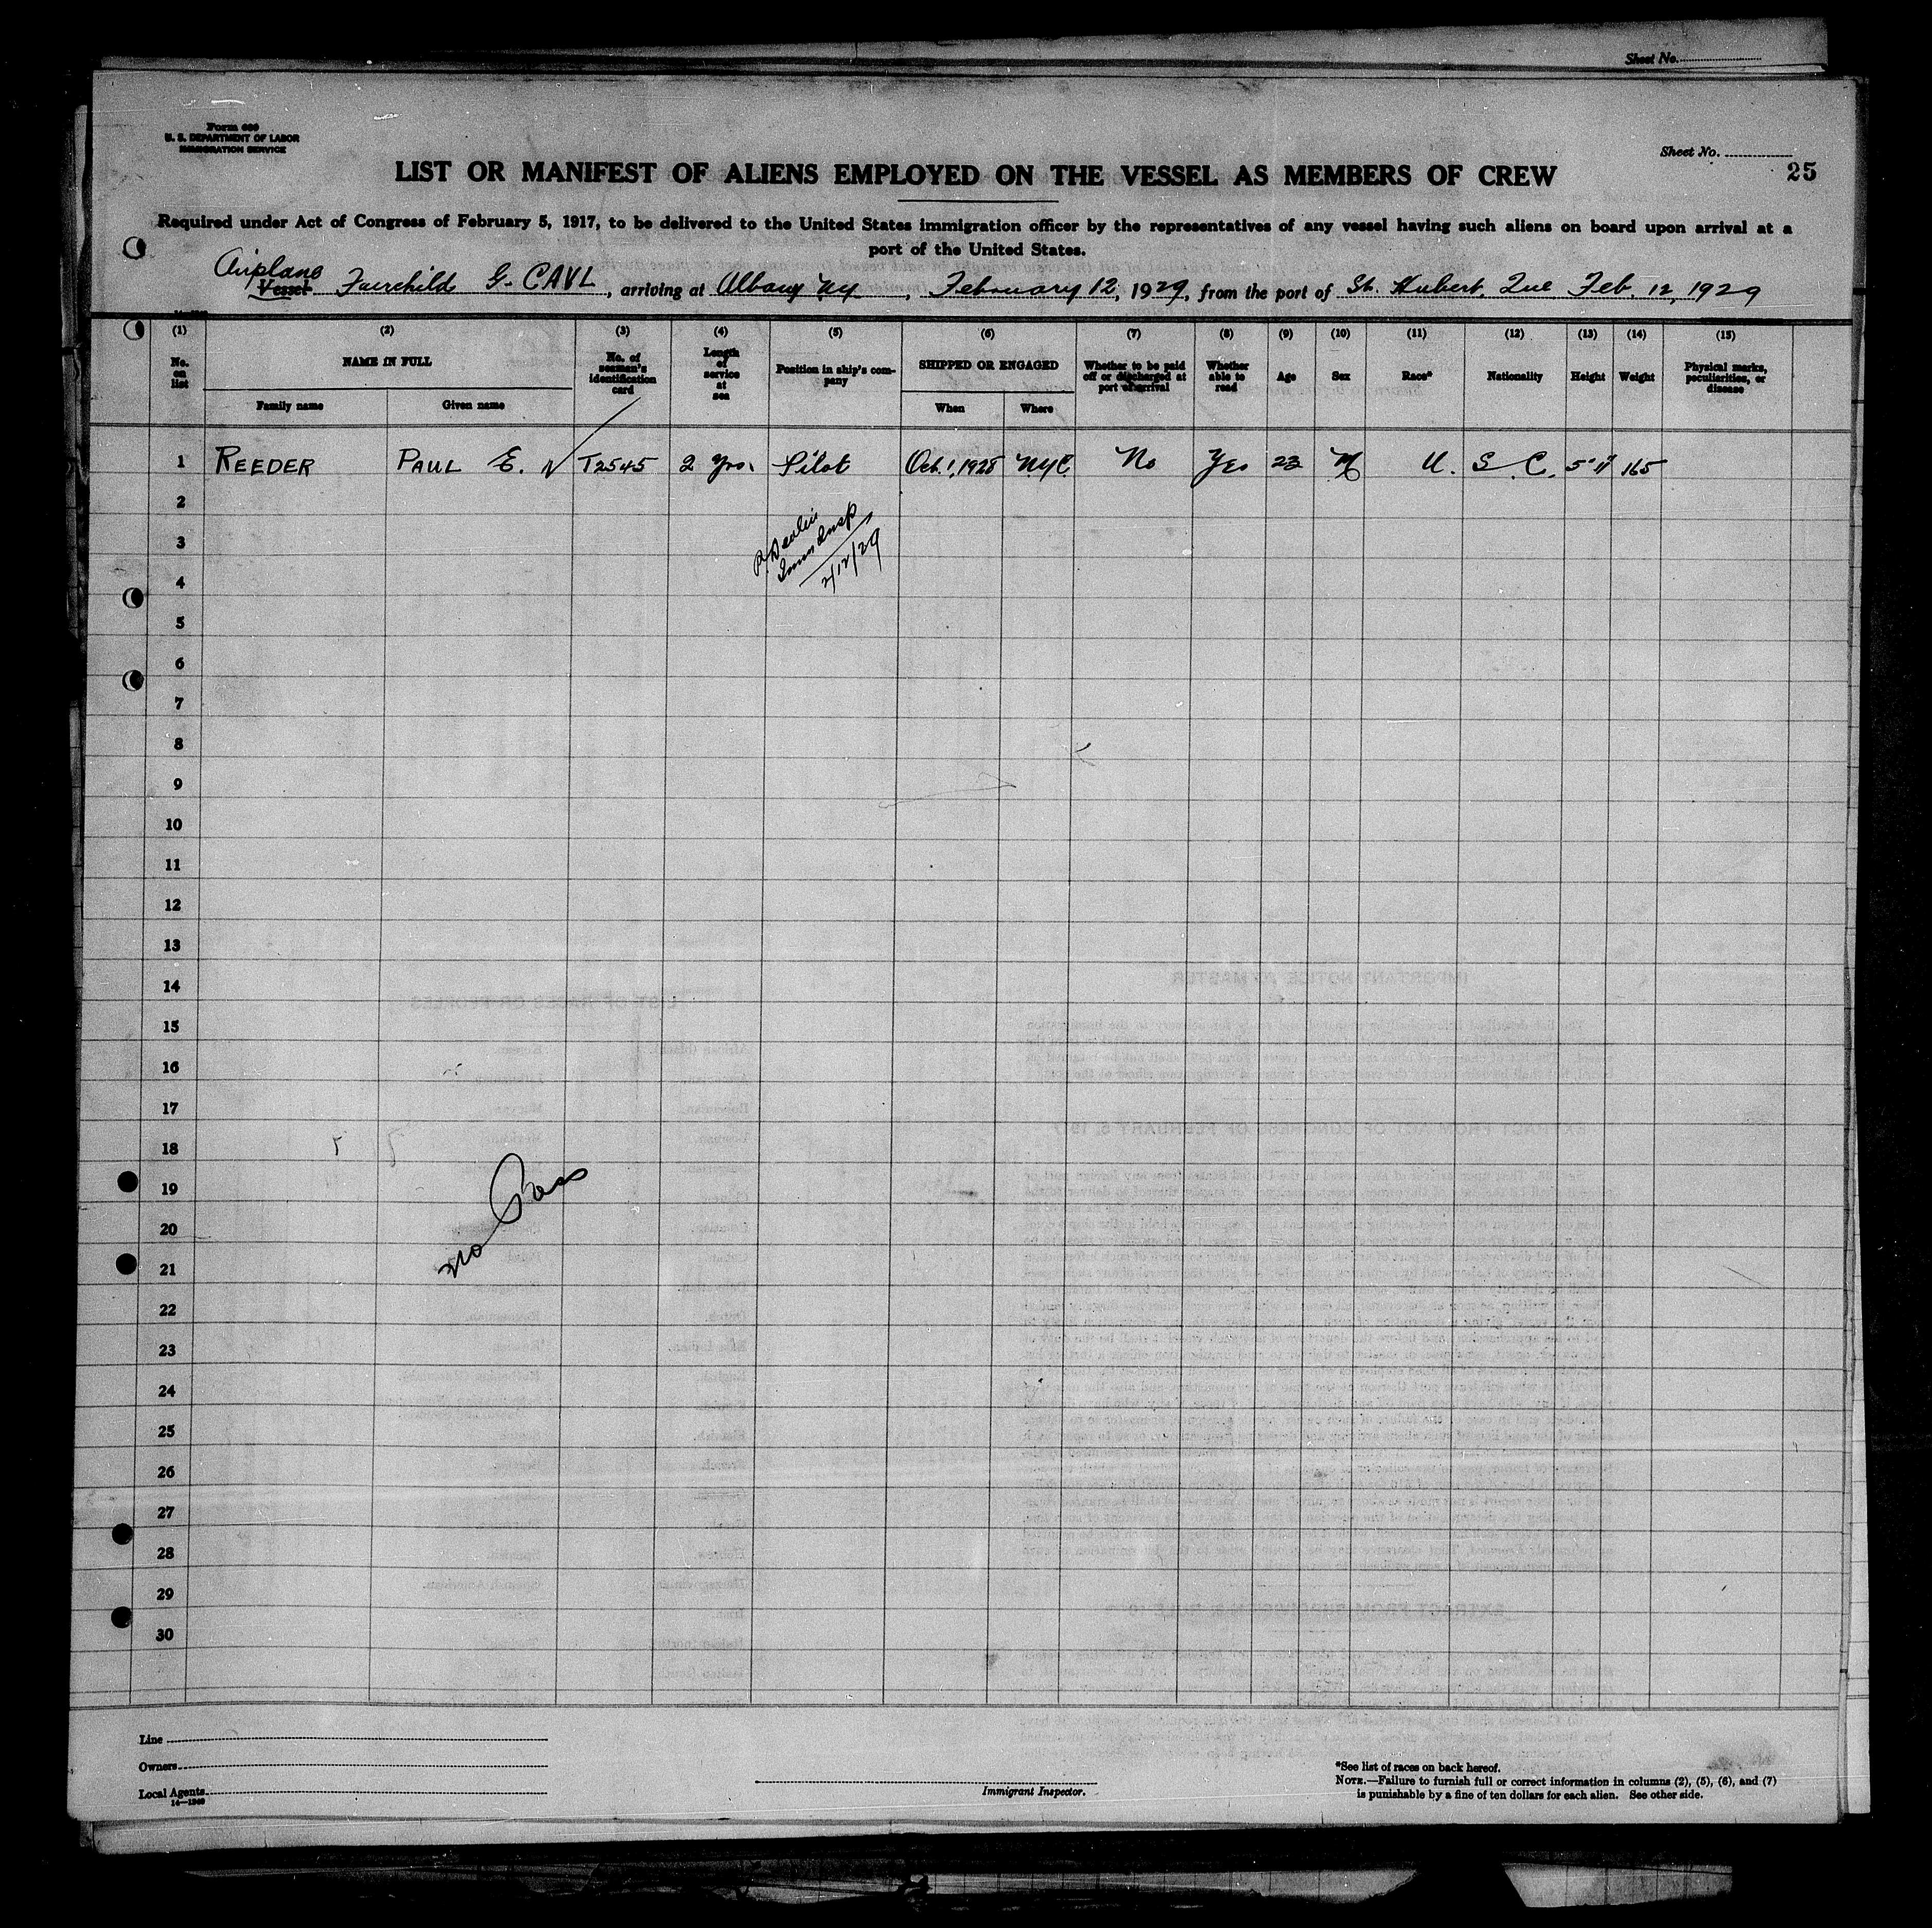 Sheet No.
Form 680
U. S. DEPARTMENT OF LABOR
IMMIGRATION SERVICE
Sheet No.
LIST OR MANIFEST OF ALIENS EMPLOYED ON THE VESSEL AS MEMBERS OF CREW
25
Required under Act of Congress of February 5, 1917, to be delivered to the United States immigration officer by the representatives of any vessel having such aliens on board upon arrival at a
port of the United States.
Airplane
Vessel Fairchild G-CAVL, arriving at Albany NY, February 12, 1929, from the port of St. Hubert, Que Feb. 12, 1929
(1) (2) (3) (4) (5) (6) (7) (8) (9) (10) (11) (12) (13) (14) (15)
No. on list
NAME IN FULL
Family name
Given name
No. of seaman's identification card
Length of service at sea
Position in ship's company
SHIPPED OR ENGAGED
When
Where
Whether to be paid off or discharged at port of arrival
Whether able to read
Age
Sex
Race*
Nationality
Height
Weight
Physical marks, peculiarities, or disease
1 REEDER PAUL E. T2545 2 yrs. Pilot Oct. 1, 1928 NYC. No Yes 23 M U. S. C. 5' 11" 165
2
Imm Insp
3
2/12/29
4
5
6
7
8
9
10
11
12
13
14
15
16
17
18
19
No Pass
20
21
22
23
24
25
26
27
28
29
30
Line
Owners
Local Agents
14—1240
Immigrant Inspector.
*See list of races on back hereof.
NOTE.—Failure to furnish full or correct information in columns (2), (5), (6), and (7)
is punishable by a fine of ten dollars for each alien. See other side.